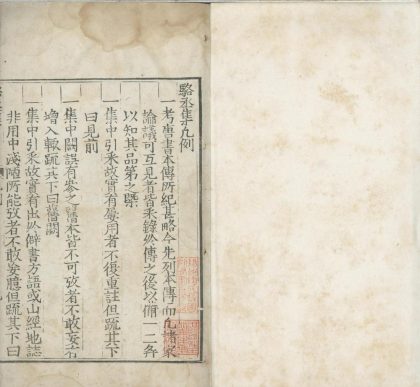 駱丞集凡例
一考唐書本傳所紀甚略今先列本傳而凡諸家
論議可互見者皆采錄於傳之後以備一二各
以知其品第之槩
一集中引釆故實有屢用者不復重註但疏其下
曰見前
一集中闕誤有參之舊本皆不可攷者不敢妄有
增入輙疏其下曰舊闕
一集中引釆故實有出於僻書方語或山經地誌
非用中淺陋所能攷者不敢妄臆但疏其下曰